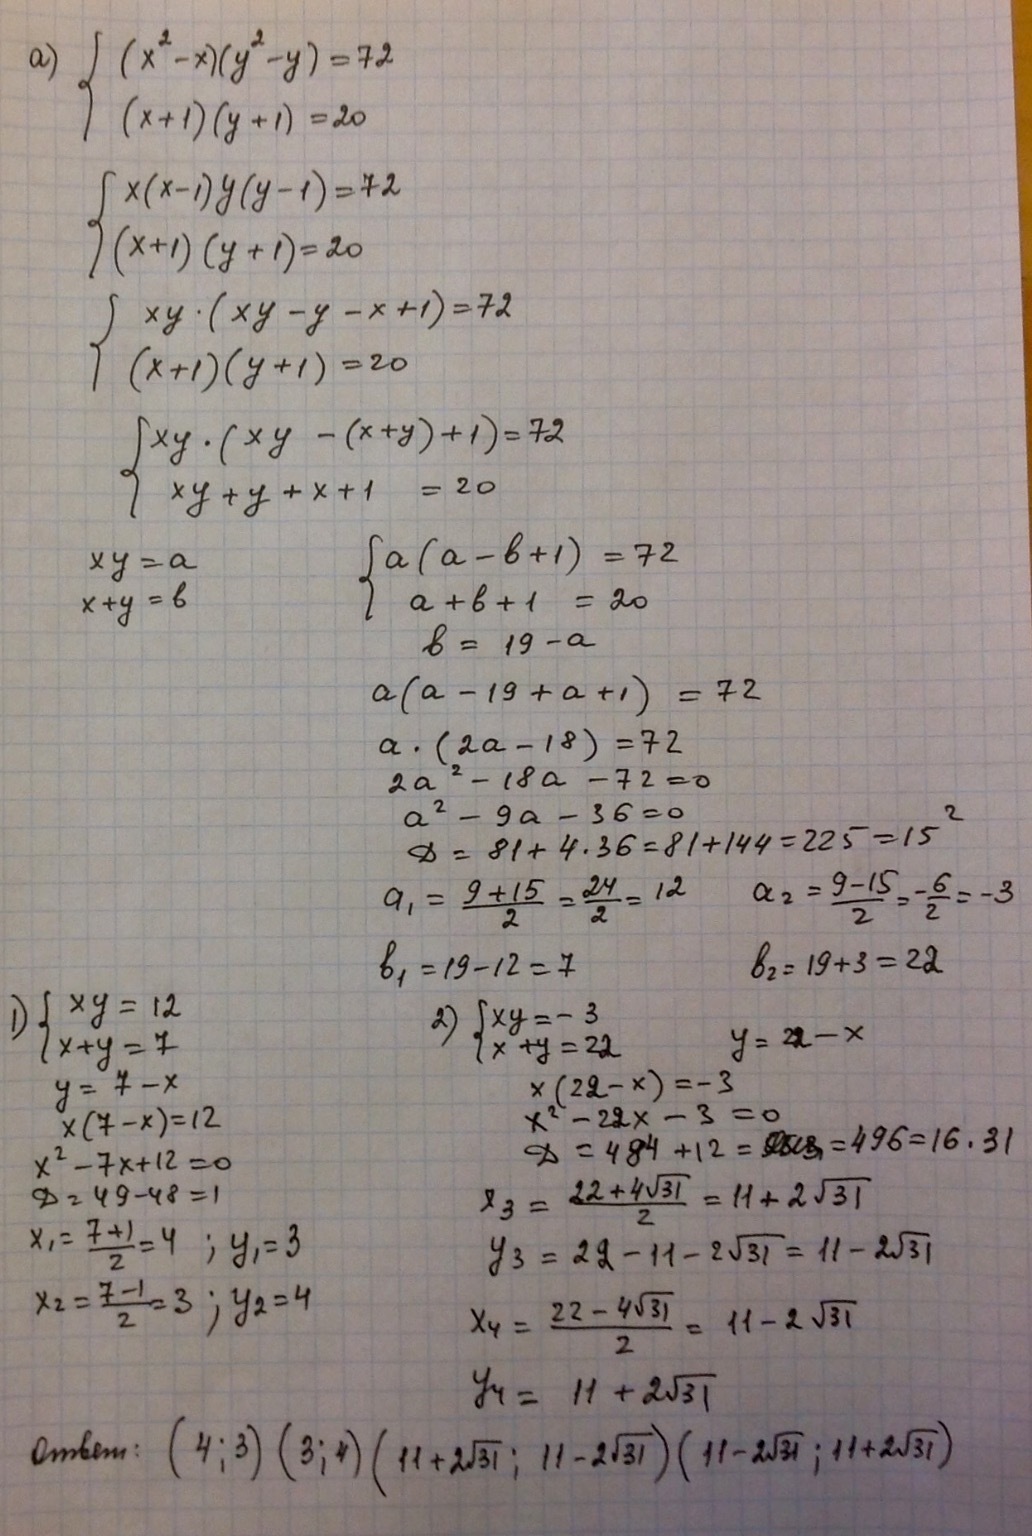 а) { (x² - x)(y² - y) = 72
(x+1)(y+1) = 20
{ x(x-1)y(y-1) = 72
(x+1)(y+1) = 20
{ xy·(xy - y - x + 1) = 72
(x+1)(y+1) = 20
{ xy·(xy - (x+y) + 1) = 72
xy + y + x + 1 = 20
xy = a
x+y = в
{ a(a - в + 1) = 72
a + в + 1 = 20
в = 19 - a
a(a - 19 + a + 1) = 72
a·(2a - 18) = 72
2a² - 18a - 72 = 0
a² - 9a - 36 = 0
D = 81 + 4·36 = 81 + 144 = 225 = 15²
a₁ = (9+15)/2 = 24/2 = 12 a₂ = (9-15)/2 = -6/2 = -3
в₁ = 19 - 12 = 7 в₂ = 19 + 3 = 22
1) { xy = 12
x+y = 7
y = 7 - x
x(7-x) = 12
x² - 7x + 12 = 0
D = 49 - 48 = 1
x₁ = (7+1)/2 = 4 ; y₁ = 3
x₂ = (7-1)/2 = 3 ; y₂ = 4
2) { xy = -3
x + y = 22 y = 22 - x
x(22-x) = -3
x² - 22x - 3 = 0
D = 484 + 12 = = 496 = 16·31
x₃ = (22+4√31)/2 = 11 + 2√31
y₃ = 22 - 11 - 2√31 = 11 - 2√31
x₄ = (22-4√31)/2 = 11 - 2√31
y₄ = 11 + 2√31
Ответ: (4;3) (3;4) (11+2√31; 11-2√31) (11-2√31; 11+2√31)